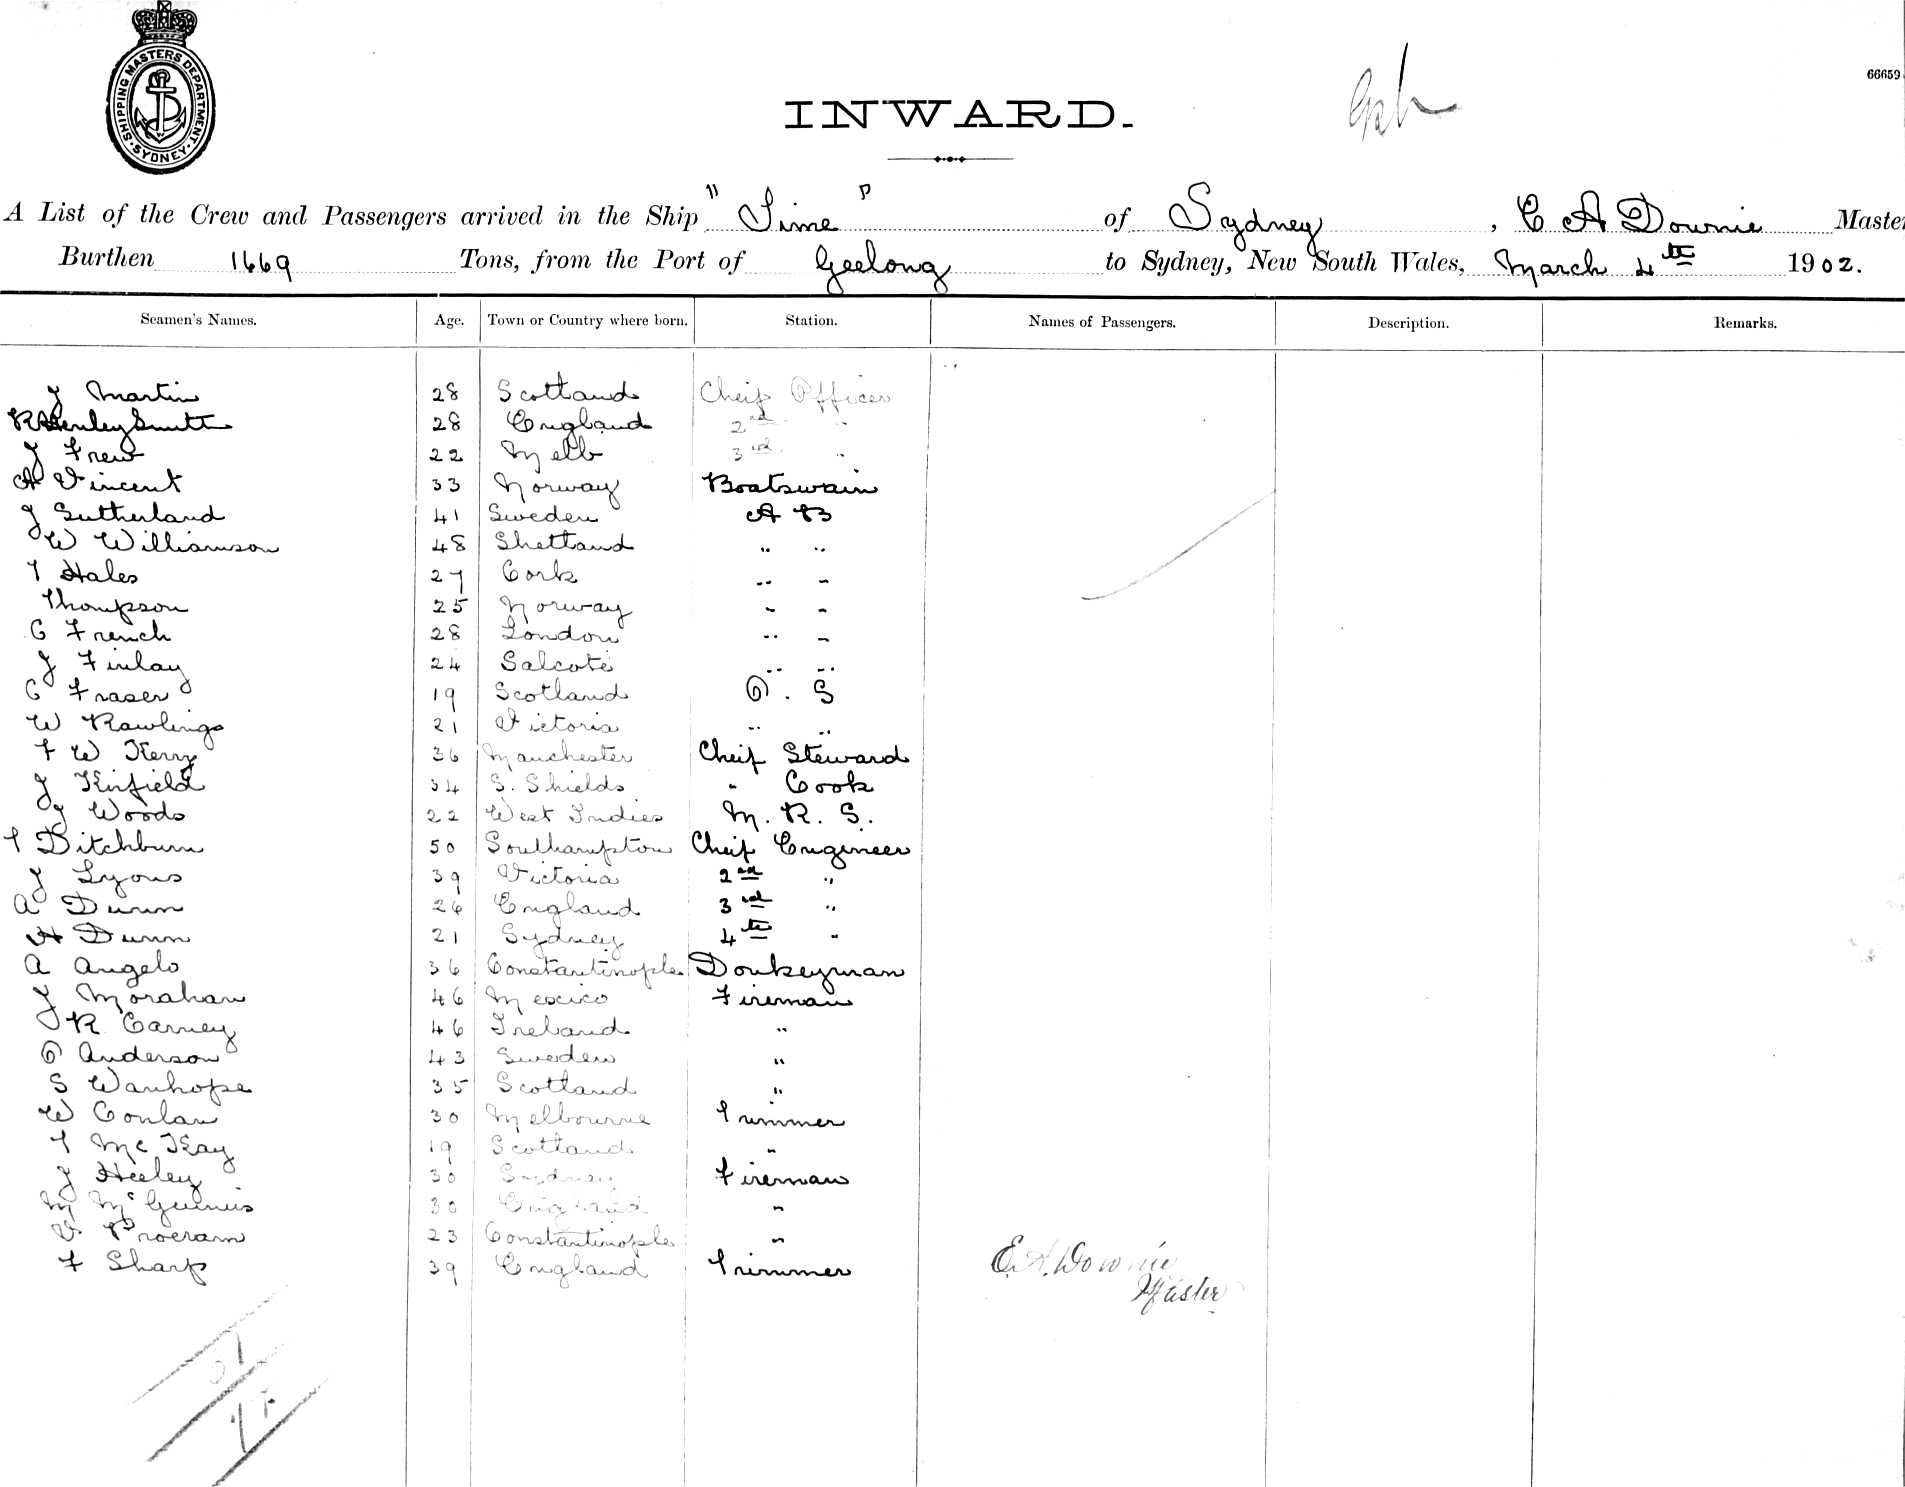 SHIPPING MASTERS DEPARTMENT · SYDNEY ·
66659
INWARD.
A List of the Crew and Passengers arrived in the Ship "Time" of Sydney, C A Downie Master
Burthen 1669 Tons, from the Port of Geelong to Sydney, New South Wales, March 4th 1902.
Seamen's Names. Age. Town or Country where born. Station. Names of Passengers. Description. Remarks.
J Martin 28 Scotland Cheif Officer
R Henley Smith 28 England 2nd "
J Frew 22 Melb 3rd "
A Vincent 33 Norway Boatswain
J Sutherland 41 Sweden A B
W Williamson 48 Shetland " "
T Hales 27 Cork " "
Thompson 25 Norway " "
C French 28 London " "
J Finlay 24 Salcote " "
C Fraser 19 Scotland O. S
W Rawlings 21 Victoria " "
F W Kerry 36 Manchester Cheif Steward
J Kinfield 34 S. Shields " Cook
J Woods 22 West Indies M. R. S.
T Ditchburn 50 Southampton Cheif Engineer
J Lyons 39 Victoria 2nd "
A Dunn 26 England 3rd "
H Dunn 21 Sydney 4th "
A Angelo 36 Constantinople Donkeyman
J Morahan 46 Mexico Fireman
R Carney 46 Ireland "
O Anderson 43 Sweden "
S Wanhope 35 Scotland "
W Conlan 30 Melbourne Trimmer
T McKay 19 Scotland "
J Heeley 30 Sydney Fireman
M McGuinis 30 England "
V. Proeram 23 Constantinople "
F Sharp 39 England Trimmer
C. A. Downie
Master